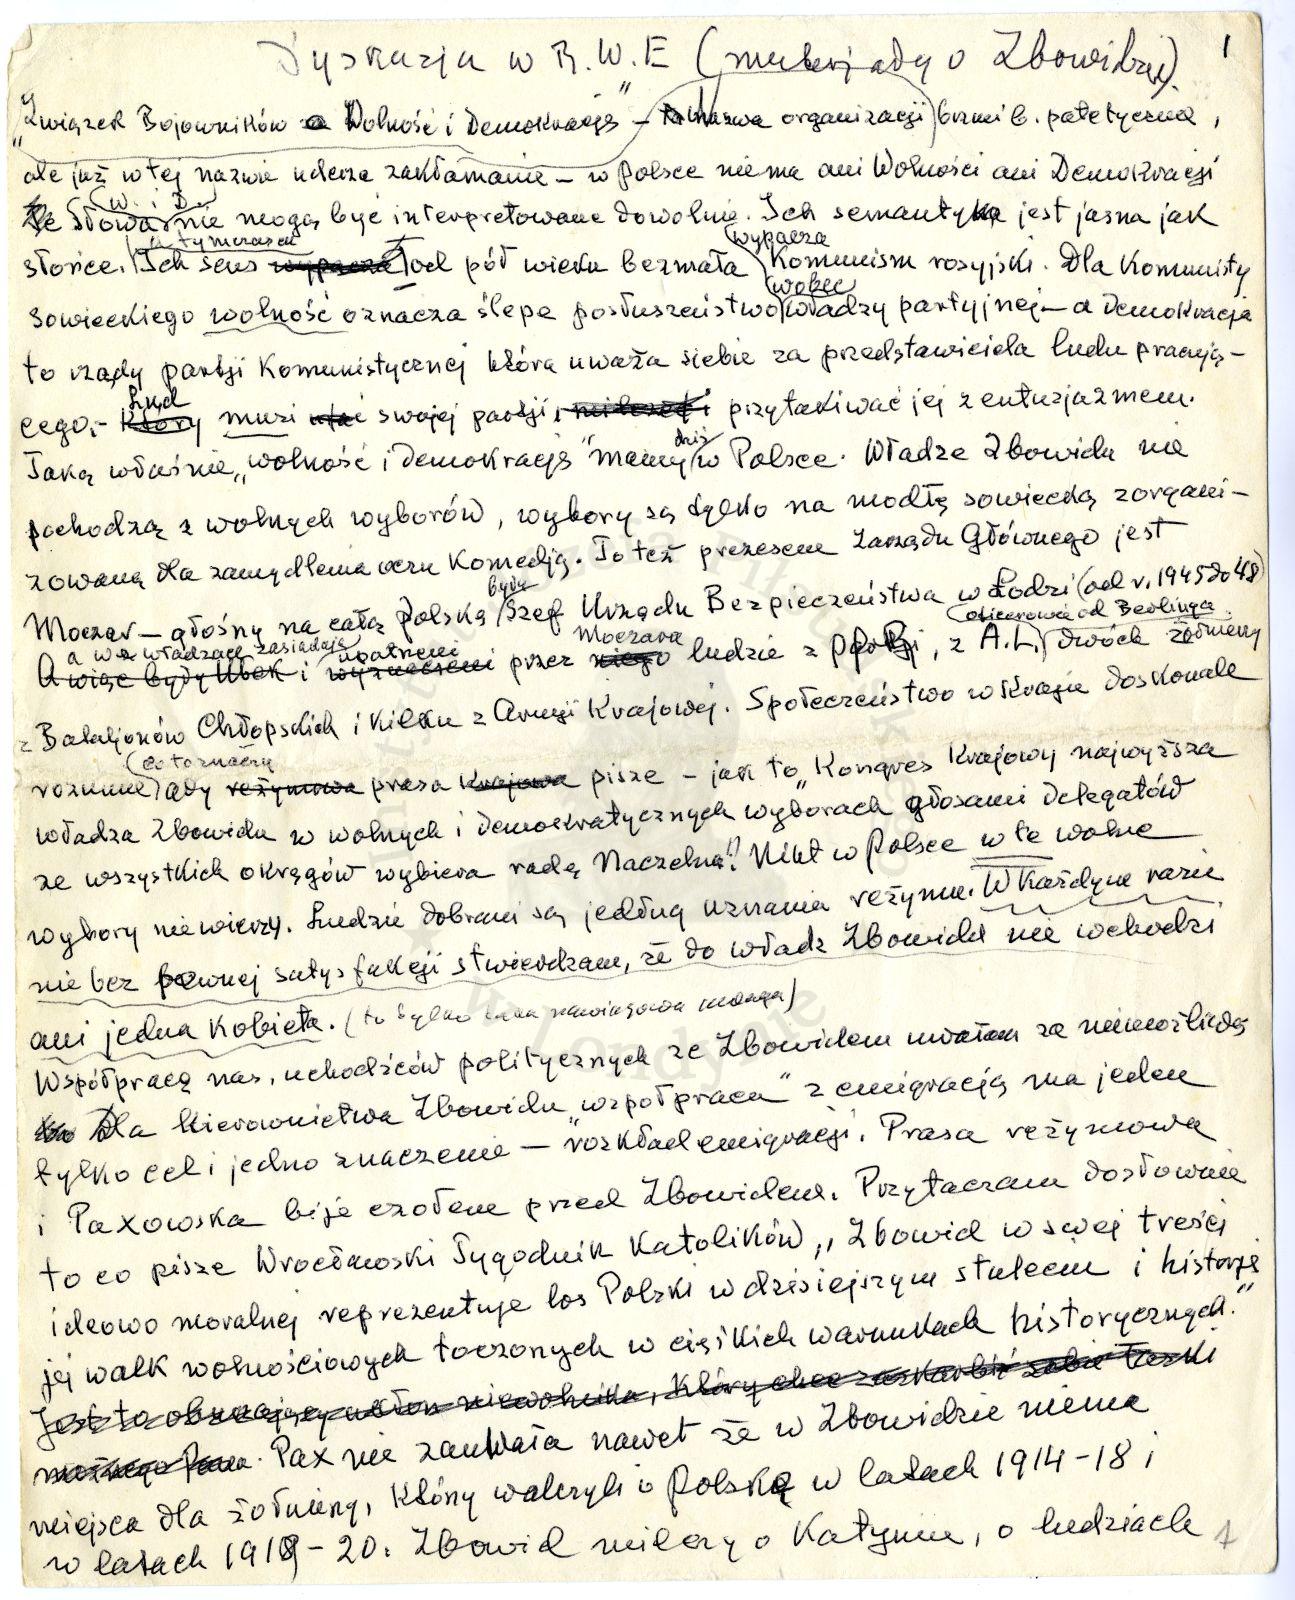 Dyskusja w R.W.E (materjały o Zbowidzie). 1
"Związek Bojowników o Wolność i Demokrację" – nazwa organizacji brzmi b. patetycznie,
ale już w tej nazwie uderza zakłamanie – w Polsce niema ani Wolności ani Demokracji
Te słowa W. i D. nie mogą być interpretowane dowolnie. Ich semantyka jest jasna jak
słońce. a tymczasem Ich sens wypacza od pół wieku bezmała wypacza Komunism rosyjski. Dla Komunisty
sowieckiego wolność oznacza ślepe posłuszeństwo wobec władzy partyjnej – a demokracja
to rządy partji Komunistycznej która uważa siebie za przedstawiciela ludu pracują-
cego, – który Lud musi swojej partji i przytakiwać jej z entuzjazmem.
Taką właśnie „wolność i demokrację" mamy dziś w Polsce. Władze Zbowidu nie
pochodzą z wolnych wyborów, wybory są tylko na modłę sowiecką zorgani-
zowaną dla zamydlenia oczu Komedją. To też prezesem Zarządu Głównego jest
Moczar – głośny na całą Polskę były Szef Urzędu Bezpieczeństwa w Łodzi (od r. 1945 do 48)
a we władzach zasiadają A więc były Ubek i wyznaczeni upatrzeni przez niego Moczara ludzie z partji, z A.L. oficerowie od Berlinga dwóch żołnierzy
z Bataljonów Chłopskich i kilku z Armji Krajowej. Społeczeństwo w Kraju doskonale
rozumie co to znaczy gdy reżymowa prasa Krajowa pisze – jak to „Kongres Krajowy najwyższa
władza Zbowidu w wolnych i demokratycznych wyborach głosami delegatów
ze wszystkich okręgów wybiera radę Naczelną"! Nikt w Polsce w te wolne
wybory nie wierzy. Ludzie dobrani są według uznania reżymu. W każdym razie
nie bez pewnej satysfakcji stwierdzam, że do władz Zbowidu nie wchodzi
ani jedna Kobieta. (to tylko taka nawiasowa uwaga)
Współpracę nas, uchodźców politycznych ze Zbowidem uważam za niemożliwą
Dla Kierownictwa Zbowidu „współpraca" z emigracją ma jeden
tylko cel i jedno znaczenie – "rozkład emigracji. Prasa reżymowa
i Paxowska bije czołem przed Zbowidem. Przytaczam dosłownie
to co pisze Wrocławski Tygodnik Katolików „Zbowid w swej treści
ideowo moralnej reprezentuje los Polski w dzisiejszym stuleciu i historję
jej walk wolnościowych toczonych w ciężkich warunkach historycznych."
Jest to oburzający ukłon niewolnika, który chce zaskarbić sobie łaski
możnego Pana. Pax nie zauważa nawet że w Zbowidzie niema
miejsca dla żołnierzy, którzy walczyli o Polskę w latach 1914-18 i
w latach 1919-20. Zbowid milczy o Katyniu, o ludziach